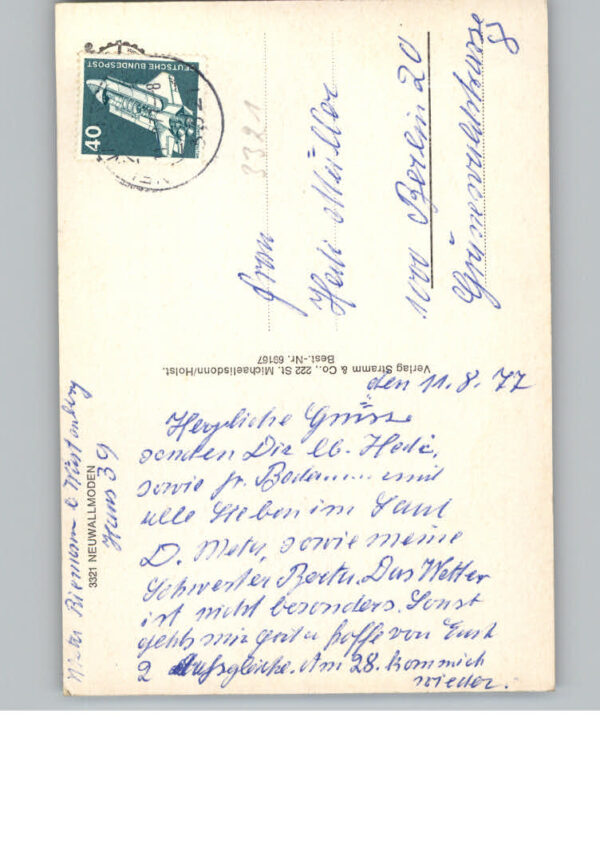 40
DEUTSCHE BUNDESPOST
3321
Frau
Hedi Müller
1000 Berlin 20
8
Verlag Stramm & Co., 222 St. Michaelisdonn/Holst.
Best.-Nr. 69167
den 11.8.77
Herzliche Grüsse
senden Dir lb. Hedi,
sowie fr. und
alle Lieben im
D. Meta, sowie meine
Schwester Berta. Das Wetter
ist nicht besonders. Sonst
gehts mir gut u hoffe von Euch
2 dasgleiche. Am 28. komm ich
wieder.
3321 NEUWALLMODEN
Haus 39